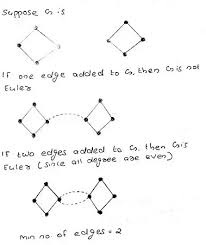 Suppose G is
If one edge added to G, then G is not
Euler
If two edges added to G, then G is
Euler (since all degree are even)
min no. of edges = 2